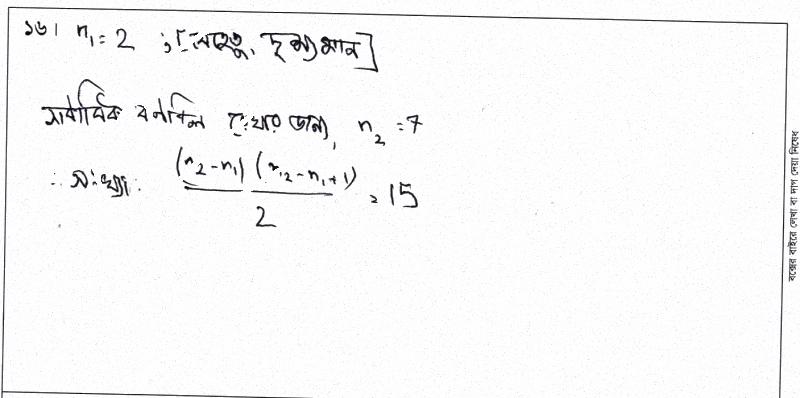 ১৬। n₁ = 2 ; [যেহেতু, দৃশ্যমান]
সর্বাধিক বর্ণালি রেখার জন্য, n₂ = 7
∴ সংখ্যা = (n₂ - n₁) (n₂ - n₁ + 1) / 2 = 15
বক্সের বাইরে লেখা বা দাগ দেয়া নিষেধ